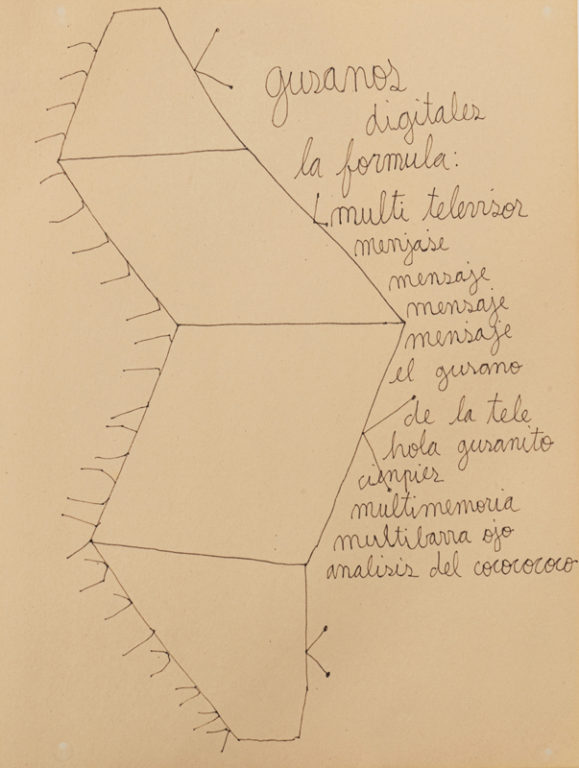 gusanos
digitales
la formula:
multi televisor
menjase
mensaje
mensaje
mensaje
el gusano
de la tele
hola gusanito
cienpies
multimemoria
multibarra ojo
analisis del cococococo